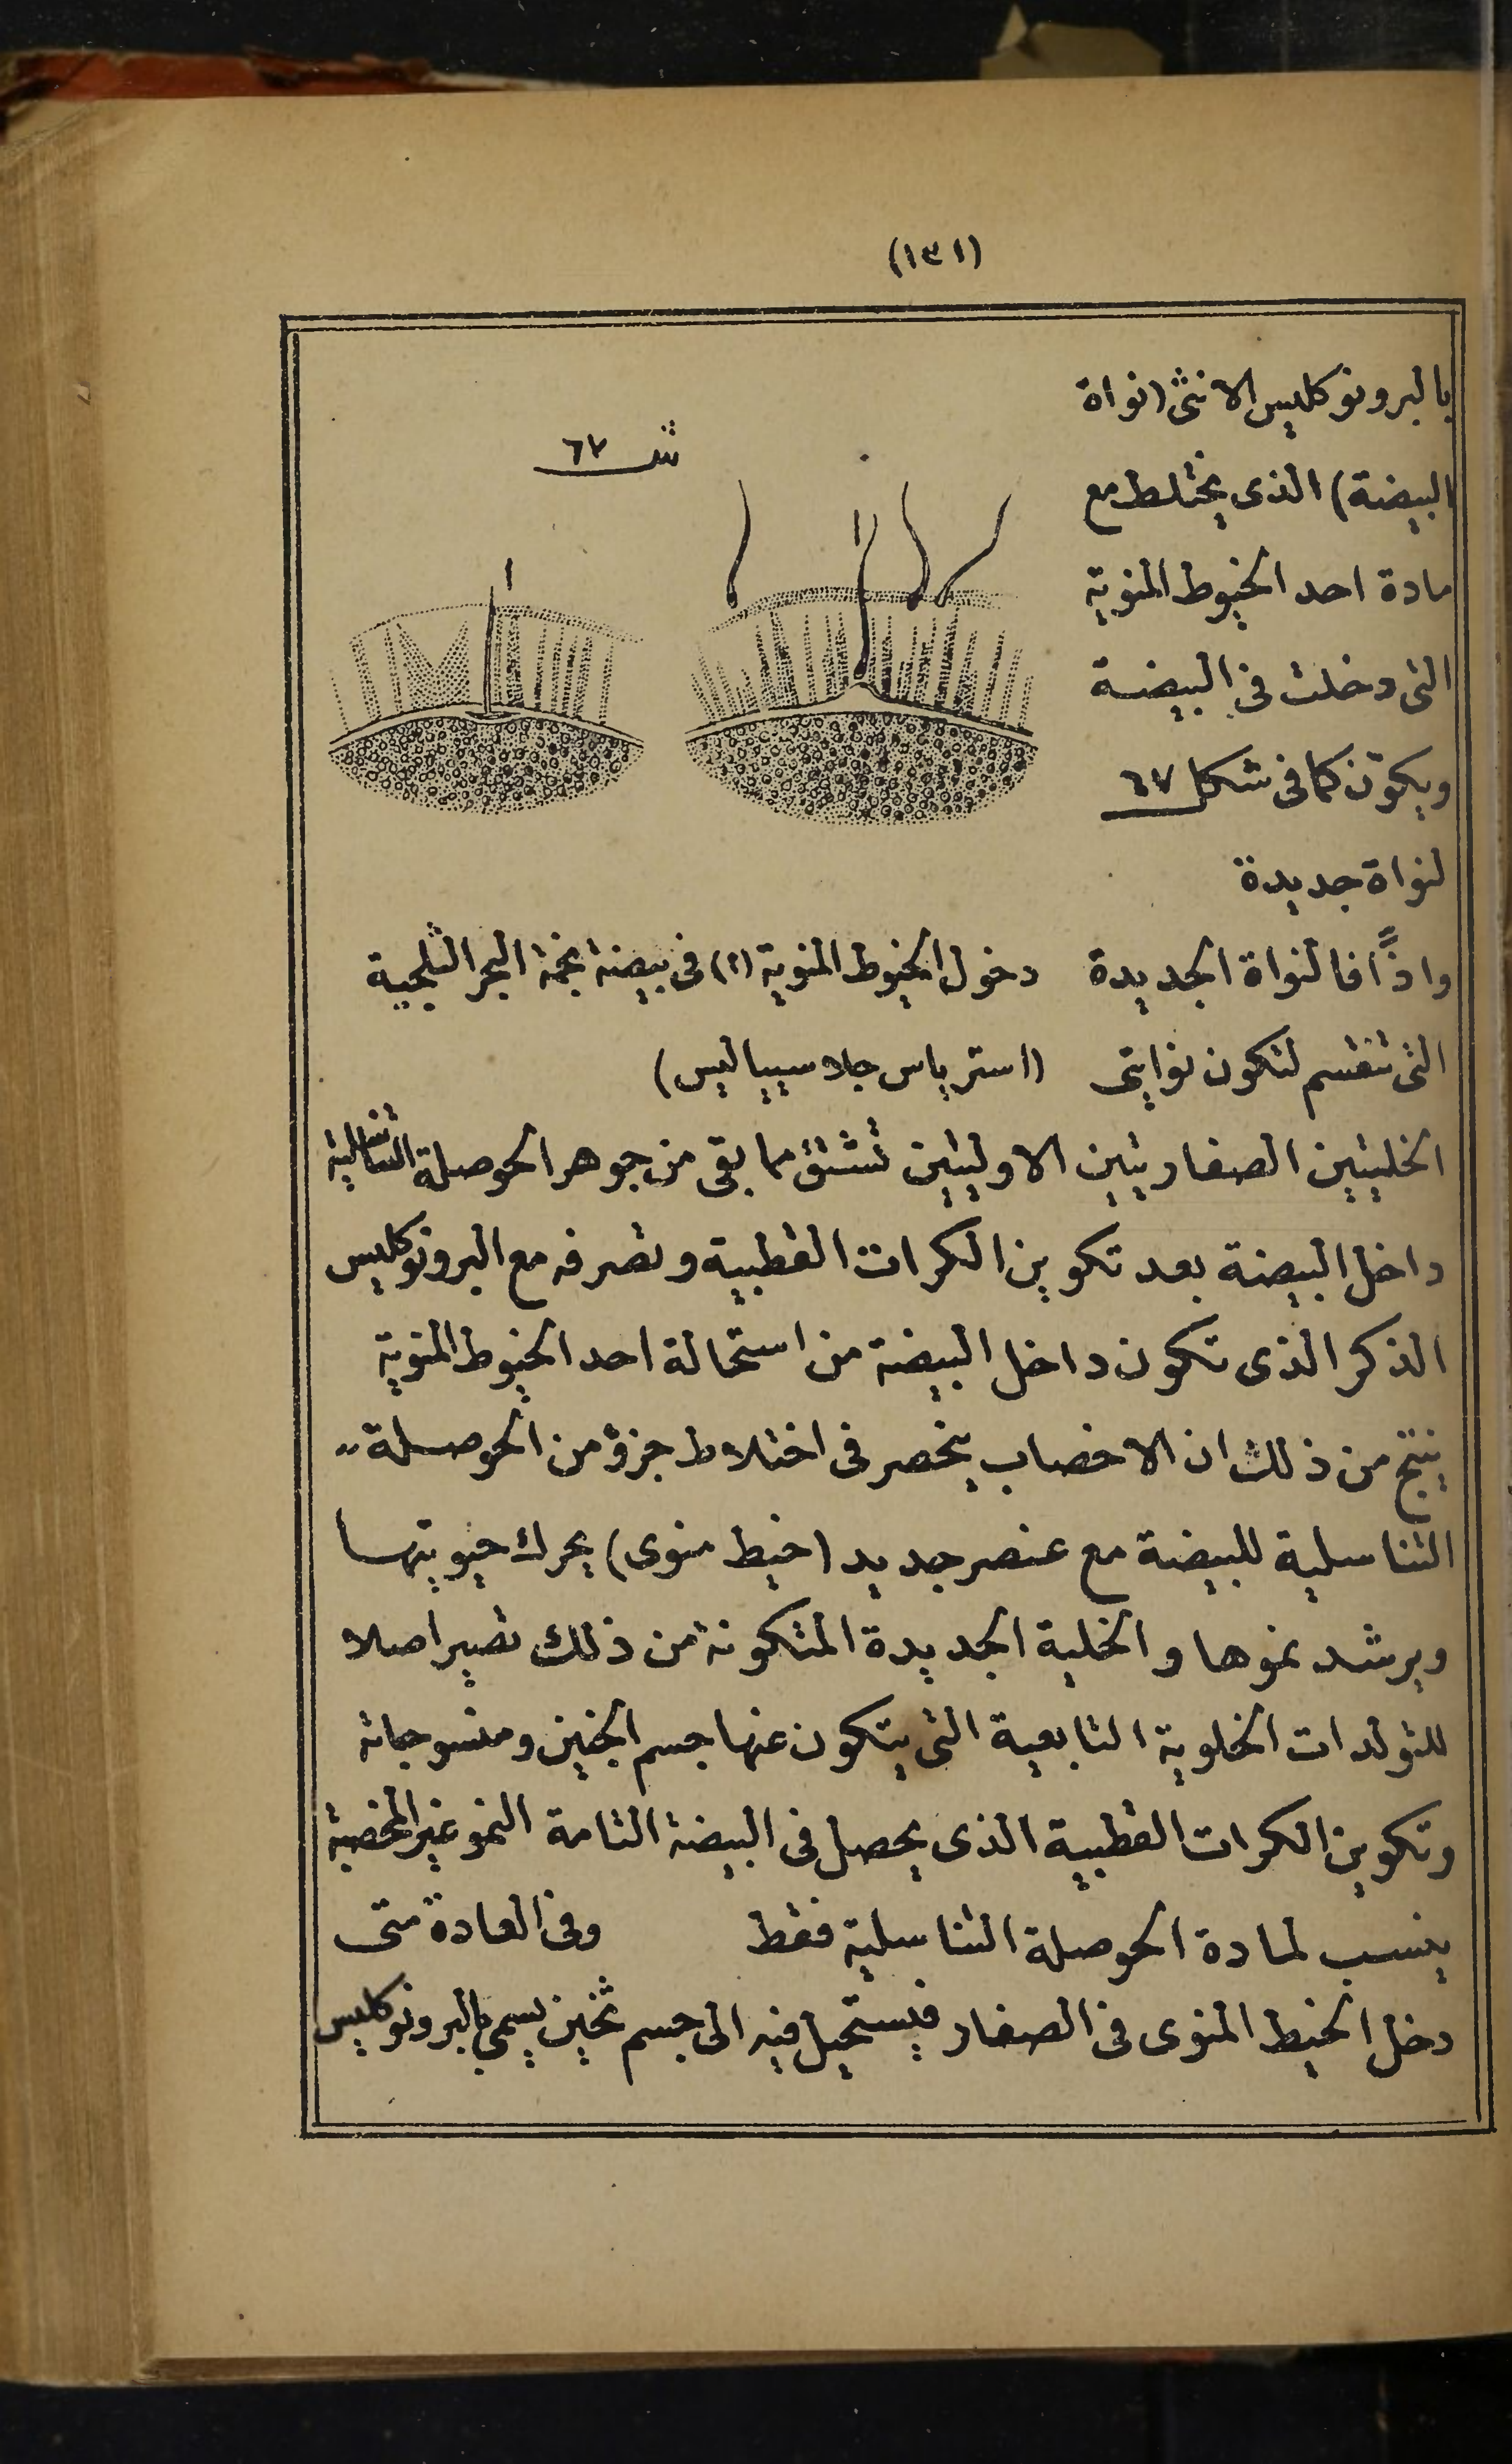 (١٣١)
بالبرونوكليس الانثى (نواة
البيضة) الذى يختلط مع
مادة احد الخيوط المنوية
التى دخلت فى البيضة
ويكوّن كما فى شكل ٦٧
لنواة جديدة
ش ٦٧
ا
ا
واذًا فالنواة الجديدة
التى تنقسم لتكون نوايتى
دخول الخيوط المنوية (ا) فى بيضة نجمة البحر الثلجية
(استرياس جلاسيياليس)
الخليتين الصفاريتين الاوليتين تنشئ مما بقى من جوهر الحوصلة التناسلية
داخل البيضة بعد تكوين الكرات القطبية وتصرفه مع البرونوكليس
الذكر الذى تكون داخل البيضة من استحالة احد الخيوط المنوية
ينتج من ذلك ان الاخصاب ينحصر فى اختلاط جزؤ من الحوصلة
التناسلية للبيضة مع عنصر جديد (خيط منوى) يحرك حيويتها
ويرشد نموها والخلية الجديدة المتكونة من ذلك تصير اصلا
للتولدات الخلوية التابعية التى يتكون عنها جسم الجنين ومنسوجاته
وتكوين الكرات القطبية الذى يحصل فى البيضة التامة النمو غير المخصبة
ينسب لمادة الحوصلة التناسلية فقط وفى العادة متى
دخل الخيط المنوى فى الصفار فيستحيل فيه الى جسم ثخين يسمى بالبرونوكليس